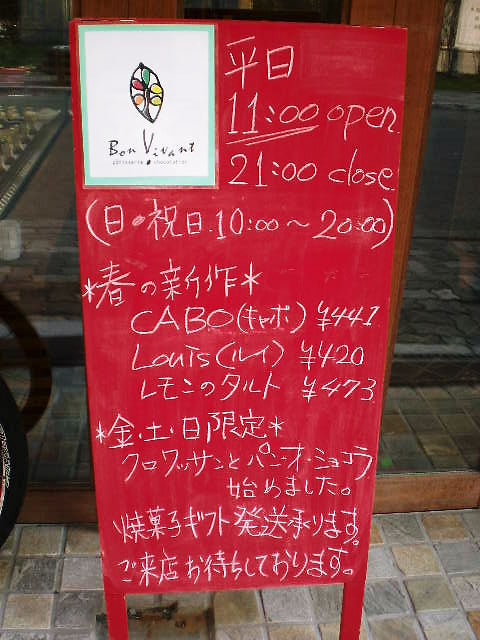 Bon Vivant
pâtisserie chocolatier
平日
11:00 open
21:00 close
(日・祝日 10:00〜20:00)
*春の新作*
CABO(キャボ) ¥441
Louis(ルイ) ¥420
レモンのタルト ¥473
*金・土・日限定*
クロワッサンとパン・オ・ショコラ
始めました。
焼菓子ギフト発送承ります。
ご来店お待ちしております。